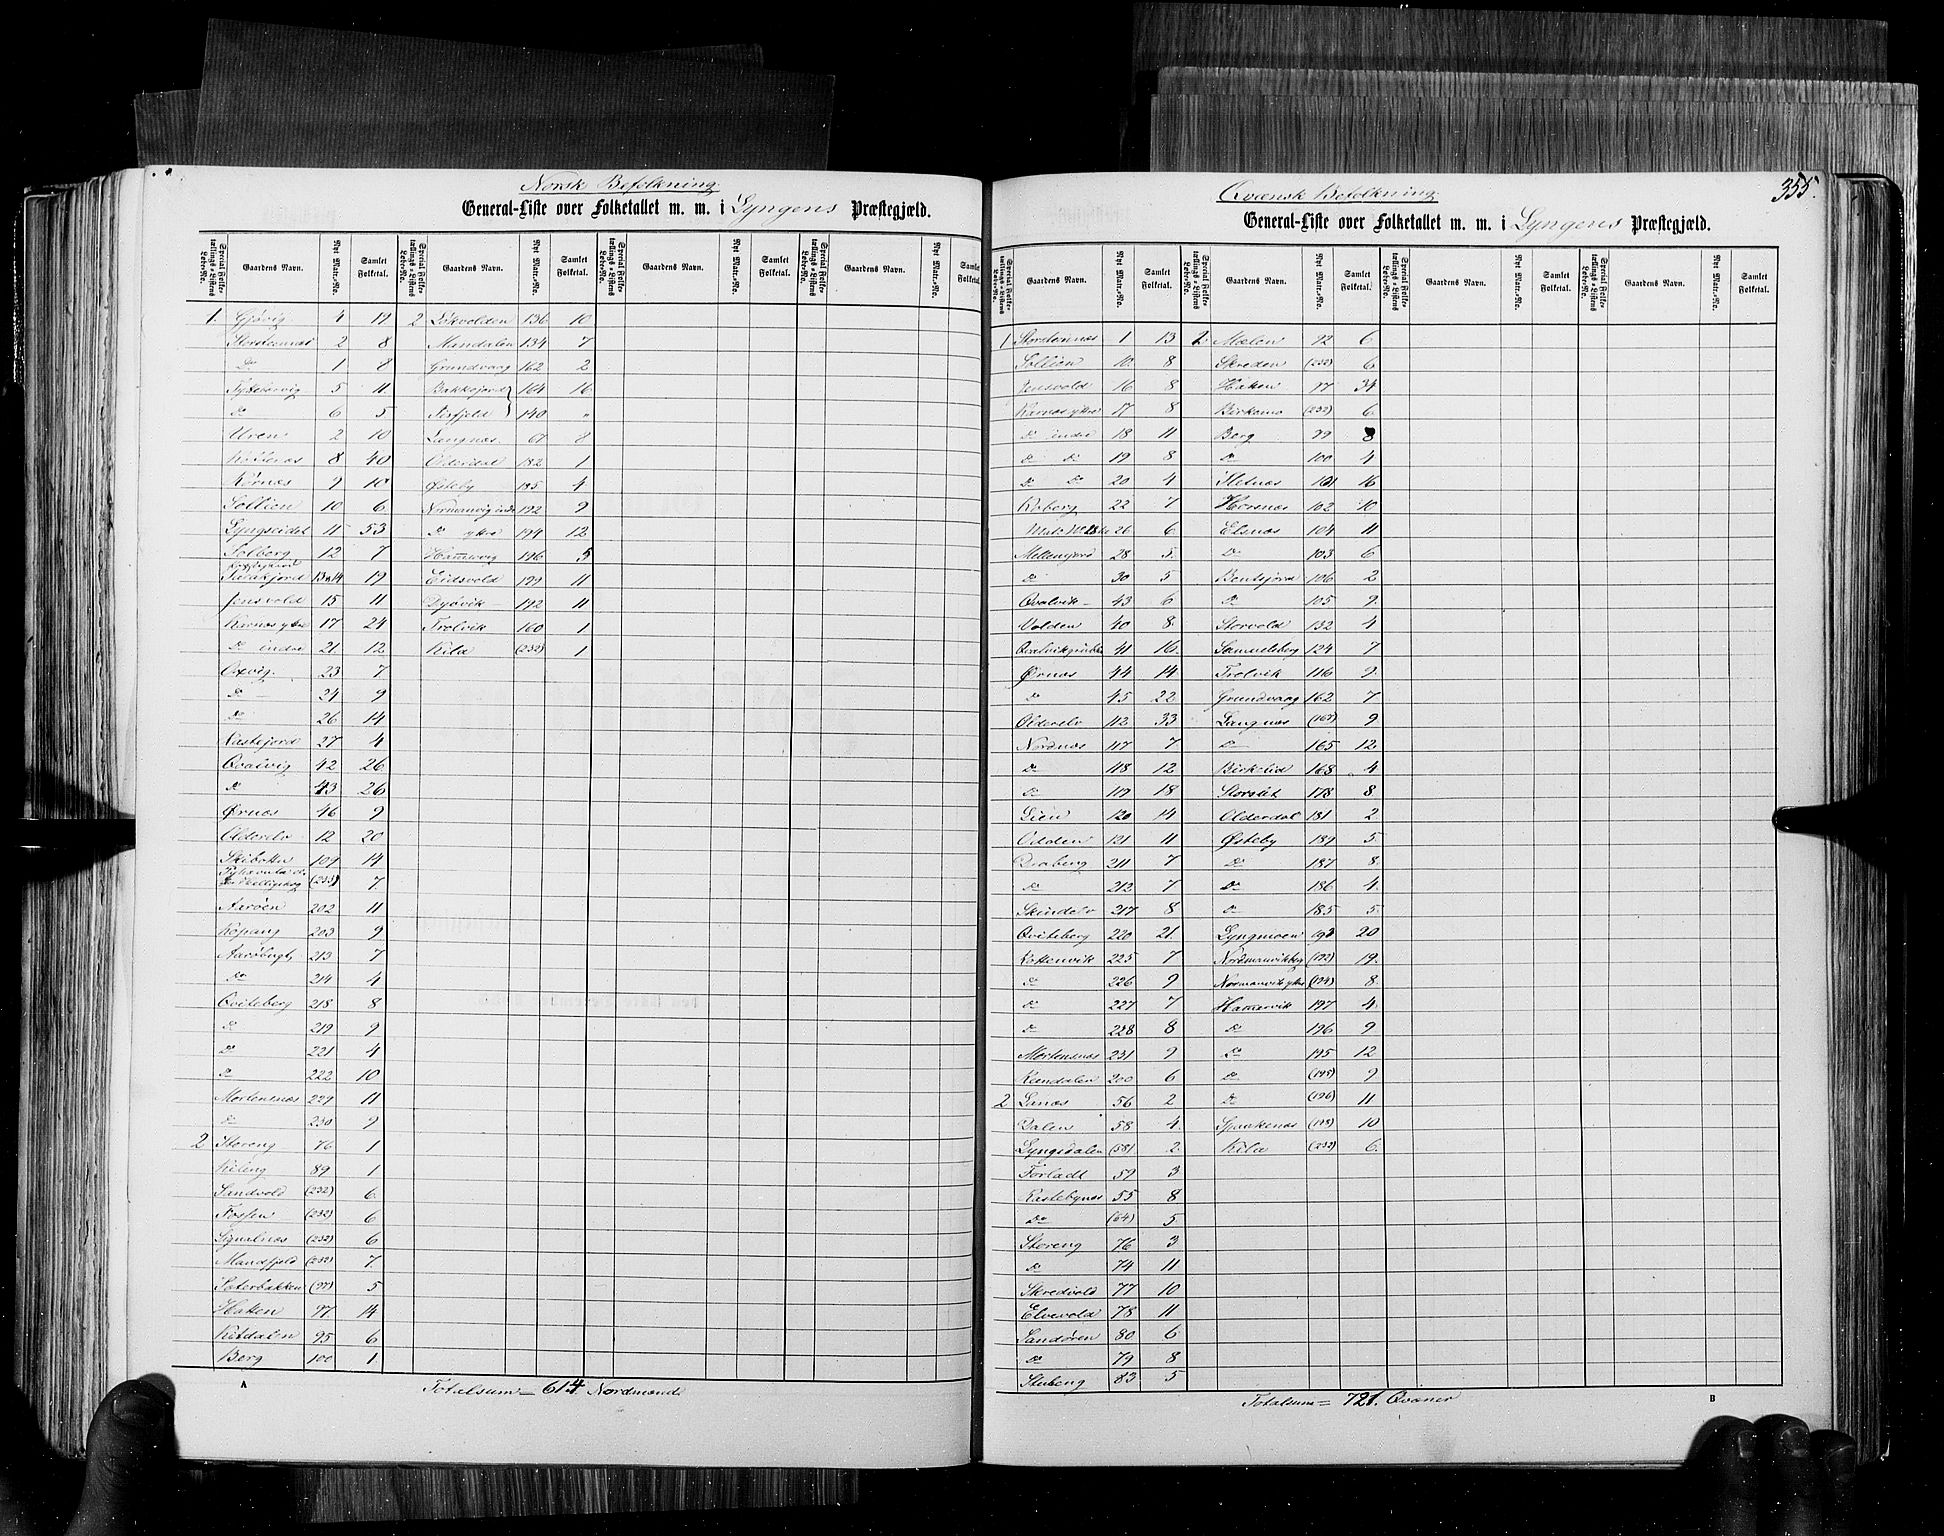 Norsk Befolkning
General-Liste over Folketallet m. m. i Lyngens Præstegjæld.
Special Folketællings-Listens Løbe-No. Gaardens Navn. Nyt Matr.-No. Samlet Folketal. Special Folketællings-Listens Løbe-No. Gaardens Navn. Nyt Matr.-No. Samlet Folketal. Special Folketællings-Listens Løbe-No. Gaardens Navn. Nyt Matr.-No. Samlet Folketal. Special Folketællings-Listens Løbe-No. Gaardens Navn. Nyt Matr.-No. Samlet Folketal.
1. Gjøvig 4 19 2 Løkvolden 136 10
Storsteennæs 2 8 Mandalen 134 7
Do 1 8 Grundvaag 162 2
5 11. Bakkejord 164 16
Do 6 5 Fisfjeld 140 "
Uren 2 10 Langnæs 67 8
8 40 Olderdal 182 1
Kornæs 9 10 Østeby 185 4
Sollien 10 6 Normanvig indre 192 9
Lyngseidet 11 53 Do ytre 194 12
Solberg 12 7 Hamnvig 196 5
13 & 14 19 Eidsvold 199 11
Jensvold 15 11 Dyövik 192 11
Karnæs ytre 17 24 Trolvik 160 1
Do indre 21 12 Kila (232) 1
Oxvig 23 7
Do 24 9
Do 26 14
Rastefjord 27 4
Qvalvig 42 26
Do 43 26
Ørnæs 46 9
Olderelv 12 20
Skibotten 109 14
(233) 7
Aarøen 202 11
Kopang 203 9
Aarøbugt 213 7
Do 214 4
Qviteberg 218 8
Do 219 9
Do 221 4
Do 222 10
Mortensnæs 229 11
Do 230 9
2 Storeng 76 1
Kiling 89 1
Sandvold (232) 6
Fossen (232) 6
Signalnæs (232) 6
Mandfjeld (232) 7
Sæterbakken (97) 5
Haken 97 14
Kitdalen 95 6
Berg 100 1
A
Totalsum = 614 Nordmænd
355.
Qvænsk Befolkning
General-Liste over Folketallet m. m. i Lyngens Præstegjæld.
Special Folketællings-Listens Løbe-No. Gaardens Navn. Nyt Matr.-No. Samlet Folketal. Special Folketællings-Listens Løbe-No. Gaardens Navn. Nyt Matr.-No. Samlet Folketal. Special Folketællings-Listens Løbe-No. Gaardens Navn. Nyt Matr.-No. Samlet Folketal. Special Folketællings-Listens Løbe-No. Gaardens Navn. Nyt Matr.-No. Samlet Folketal.
1 Storstennæs 1 13 2 Mælen 92 6
Sollien 10. 8 Skreden (232) 6
Jensvold 16 8 Haken 97 34
Karnæs ytre 17 8 Birkemo (232) 6
Do indre 18 11 Berg 99 8
Do Do 19 8 Do 100 4
Do Do 20 4 Sletnæs 101 16
Roberg 22 7 Hornæs 102 10
26 6 Elsnæs 104 11
Mellemjord 28 5 Do 103 6
Do 30 5 Bentsjord 106 2
Qvalvik 43 6 Do 105 9
Volden 40 8 Storvold 132 4
41 10 Samuelsberg 124 7
Ørnæs 44 14 Trolvik 116 9
Do 45 22 Grundvaag 162 7
Olderelv 112 33 Langnæs (167) 9
Nordnæs 117 7 Do 165 12
Do 118 12 Birk-lid 168 4
Do 119 18 Storslet 178 8
Lien 120 14 Olderdal 181 2
Odden 121 11 Østeby 189 5
Draberg 211 7 Do 187 8
Do 212 7 Do 186 4
Skindelv 217 8 Do 185 5
Qviteberg 220 21 Lyngmoen 193 20
Rottenvik 225 7 Nordmanvikbeg (192) 19
Do 226 9 Normanvik ytre (194) 8
Do 227 7 Hamervik 197 4
Do 228 8 Do 196 9
Mortensnæs 231 9 Do 195 12
Rændalen 200 6 Do (195) 9
2 Lanæs 56 2 Do (196) 11
Dalen 58 4 Sparkenæs (198) 10
Lyngsdalen (58) 2 Kila (232) 6
Forladt 59 3
Rastebynæs 55 8
Do (64) 5
Storeng 76 3
Do 74 11
Skredvold 77 10
Elvevold 78 11
Sandøren 80 6
Do 79 8
Stubeng 83 5
Totalsum = 721. Qvæner
B